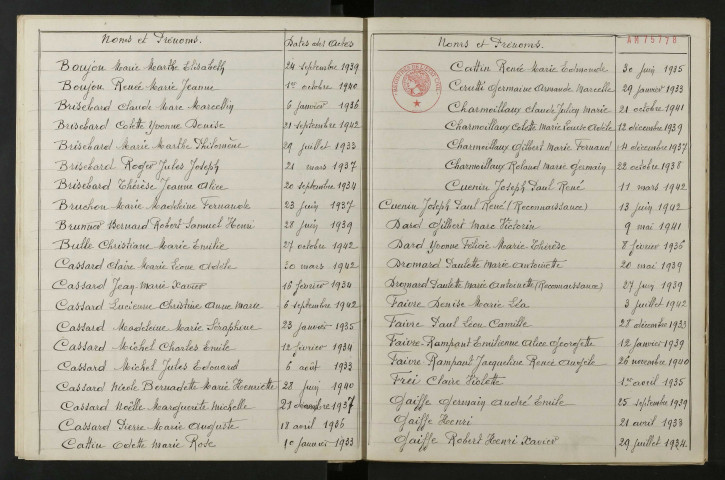 Noms et Prénoms. Dates des Actes
Boujon Marie Marthe Elisabeth 24 septembre 1939
Boujon Renée Marie Jeanne 1er octobre 1940
Brisebard Claude Marc Marcellin 6 janvier 1936
Brisebard Colette Yvonne Denise 21 septembre 1942
Brisebard Marie Marthe Philomène 29 juillet 1933
Brisebard Roger Jules Joseph 21 mars 1937
Brisebard Thérèse Jeanne Alice 20 septembre 1934
Bruchon Marie Madeleine Fernande 23 juin 1937
Brunner Bernard Robert Samuel Henri 28 juin 1939
Bulle Christiane Marie Emilie 27 octobre 1942
Cassard Claire Marie Léone Adèle 30 mars 1942
Cassard Jean Marie Xavier 16 février 1934
Cassard Lucienne Christine Anne Marie 6 septembre 1942
Cassard Madeleine Marie Séraphine 23 janvier 1935
Cassard Michel Charles Emile 12 février 1934
Cassard Michel Jules Edouard 6 août 1933
Cassard Nicole Bernadette Marie Henriette 28 juin 1940
Cassard Noëlle Marguerite Michelle 1937
Cassard Pierre Marie Auguste 18 avril 1936
Cattin Odette Marie Rose 10 janvier 1933
Noms et Prénoms. AN 75778
Cattin Renée Marie Edmonde 30 juin 1935
Cerutti Germaine Armande Marcelle 29 janvier 1933
Charmoillaux Claude Julien Marie 21 octobre 1941
Charmoillaux Colette Marie Louise Adèle 12 décembre 1939
Charmoillaux Gilbert Marie Fernand 4 décembre 1937
Charmoillaux Roland Marie Germain 22 octobre 1938
Cuenin Joseph Paul René 11 mars 1942
Cuenin Joseph Paul René (Reconnaissance) 13 juin 1942
Dard Gilbert Marc Victorin 9 mai 1941
Dard Yvonne Félicie Marie Thérèse 8 février 1936
Dromard Paulette Marie Antoinette 20 mai 1939
Dromard Paulette Marie Antoinette (Reconnaissance) 27 juin 1939
Faivre Denise Marie Léa 3 juillet 1942
Faivre Paul Léon Camille 28 décembre 1933
Faivre-Rampant Emilienne Alice Georgette 12 janvier 1939
Faivre Rampant Jacqueline Renée Angèle 26 novembre 1940
Frei Claire Violette 1er avril 1935
Gaiffe Germain André Emile 25 septembre 1939
Gaiffe Henri 21 avril 1933
Gaiffe Robert Henri Xavier 29 juillet 1934.